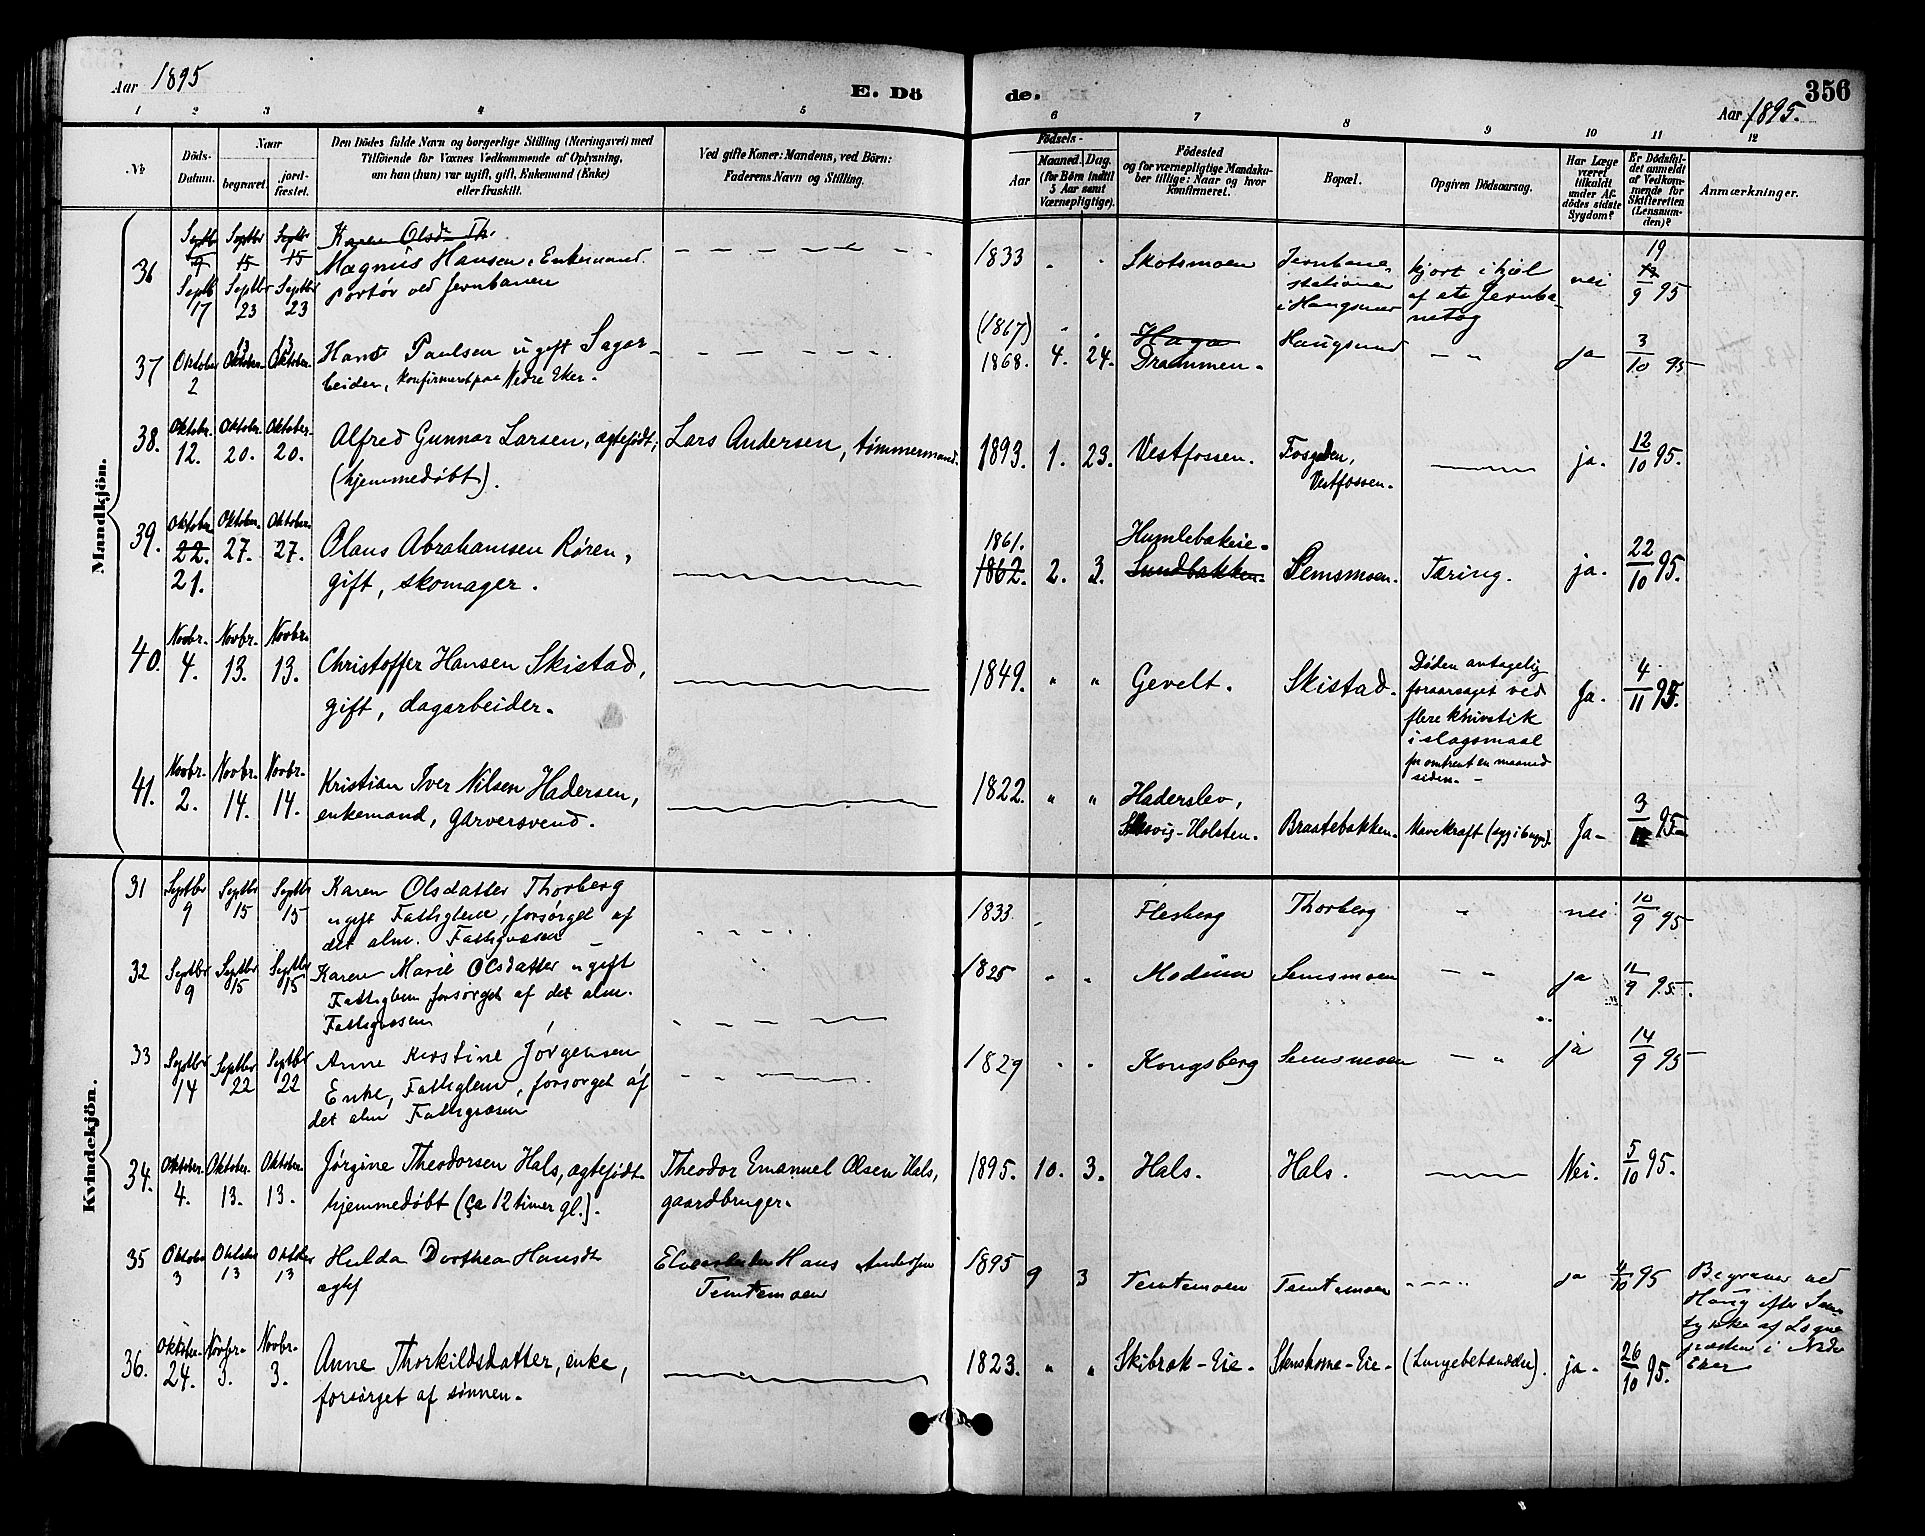 Aar 1895
E. Dö
de.
356
Aar 1895.
1 2 3 4 5 6 7 8 9 10 11 12
No
Döds-
Datum.
Naar
begravet.
jord-
fæstet.
Den Dödes fulde Navn og borgerlige Stilling (Næringsvei) med
Tilföiende for Voxnes Vedkommende af Oplysning,
om han (hun) var ugift, gift, Enkemand (Enke)
eller fraskilt.
Ved gifte Koner: Mandens, ved Börn:
Faderens Navn og Stilling.
Födsels-
Aar
Maaned.
Dag.
(for Börn indtil
5 Aar samt
Værnepligtige).
Födested
og for værnepligtige Mandska-
ber tillige: Naar og hvor
konfirmeret.
Bopæl.
Opgiven Dödsaarsag.
Har Læge
været
tilkaldt
under Af-
dödes sidste
Sygdom?
Er Dödsfal-
det anmeldt
af Vedkom-
mende for
Skifteretten
(Lensman-
den)?
Anmærkninger.
Mandkjön.
Septb 9 Septbr 15 Septbr 15 Karen Olsd. Th.
36 Septb 17 Septbr 23 Septbr 23
Magnus Hansen, Enkemand
portør ved Jernbanen
1833 Skotsmoen
Jernbane-
stationen
kjørt ihjel
af et Jernba-
netog
nei 19/9 95
37 Oktober 2 Oktober 13 Oktober 13
Hans Paulsen ugift Sagar-
beider, konfirmeret paa Nedre Eker.
(1867)
1868. 4. 24.
Haga
Drammen.
Haugsund
— „ ja 3/10 95
38. Oktobr. 12. Oktober. 20. Oktober. 20.
Alfred Gunnar Larsen, ægtefødt;
(hjemmedøbt).
Lars Andersen, tømmermand.
1893. 1. 23. Vestfossen.
Vestfossen.
ja. 12/10 95.
39. Oktober 22. 21. Oktober. 27. Oktober. 27.
Olaus Abrahamsen Røren,
gift, skomager.
1861.
1862. 2. 3.
Humlebakeie.
Sundbakken.
Semsmoen. Tæring. ja. 22/10 95.
40. Novbr. 4. Novbr. 13. Novbr. 13.
Christoffer Hansen Skistad,
gift, dagarbeider.
1849. „ „ Gevelt. Skistad.
Døden antagelig
foraarsaget ved
flere knivstik
i slagsmaal
for omtrent en maaned
siden. -
Ja. 4/11 95.
41. Novbr. 2. Novbr. 14. Novbr. 14.
Kristian Iver Nilsen Hadersen,
enkemand, garversvend.
1822. „ „
Haderslev,
Slesvig-Holsten.
Braatebakken. Mavekræft Ja- 3/11 95
Kvindekjön.
31 Septbr 9 Septbr 15 Septbr 15
Karen Olsdatter Thorberg
ugift Fattiglem, forsørget af
det alm. Fattigvæsen
1833 Flesberg Thorberg „ nei 10/9 95
32 Septbr 9 Septbr 15 Septbr 15
Karen Marie Olsdatter ugift
Fattiglem forsørget af det alm.
Fattigvæsen
1825 „ „ Modum Semsmoen — „ ja 12/9 95.
33 Septbr 14 Septbr 22 Septbr 22
Anne Kirstine Jørgensen
Enke, Fattiglem, forsørget af
det alm Fattigvæsen
1829 Kongsberg Semsmoen — „ ja 14/9 95
34. Oktober. 4. Oktober. 13. Oktober. 13.
Jørgine Theodorsen Hals, ægtefødt
hjemmedøbt (ca 12 timer gl.).
Theodor Emanuel Olsen Hals,
gaardbruger.
1895. 10. 3. Hals. Hals. Nei. 5/10 95.
35 Oktober 3 Oktober 13 Oktober 13
Hulda Dorthea Hansdt
ægtef
Hans Andersen
Temtemoen
1895 9 3 Temtemoen Temtemoen ja 4/10 95
Begraves ved
Haug efter Sam-
tykke af Sogne-
præsten i Nedre
Eker
36. Oktober. 24. Novbr. 3. Novbr. 3.
Anne Thorkildsdatter, enke,
forsørget af sønnen.
1823. „ „ Skibrak-Eie. Stenshorne-Eie- (Lungebetændelse). ja. 26/10 95.